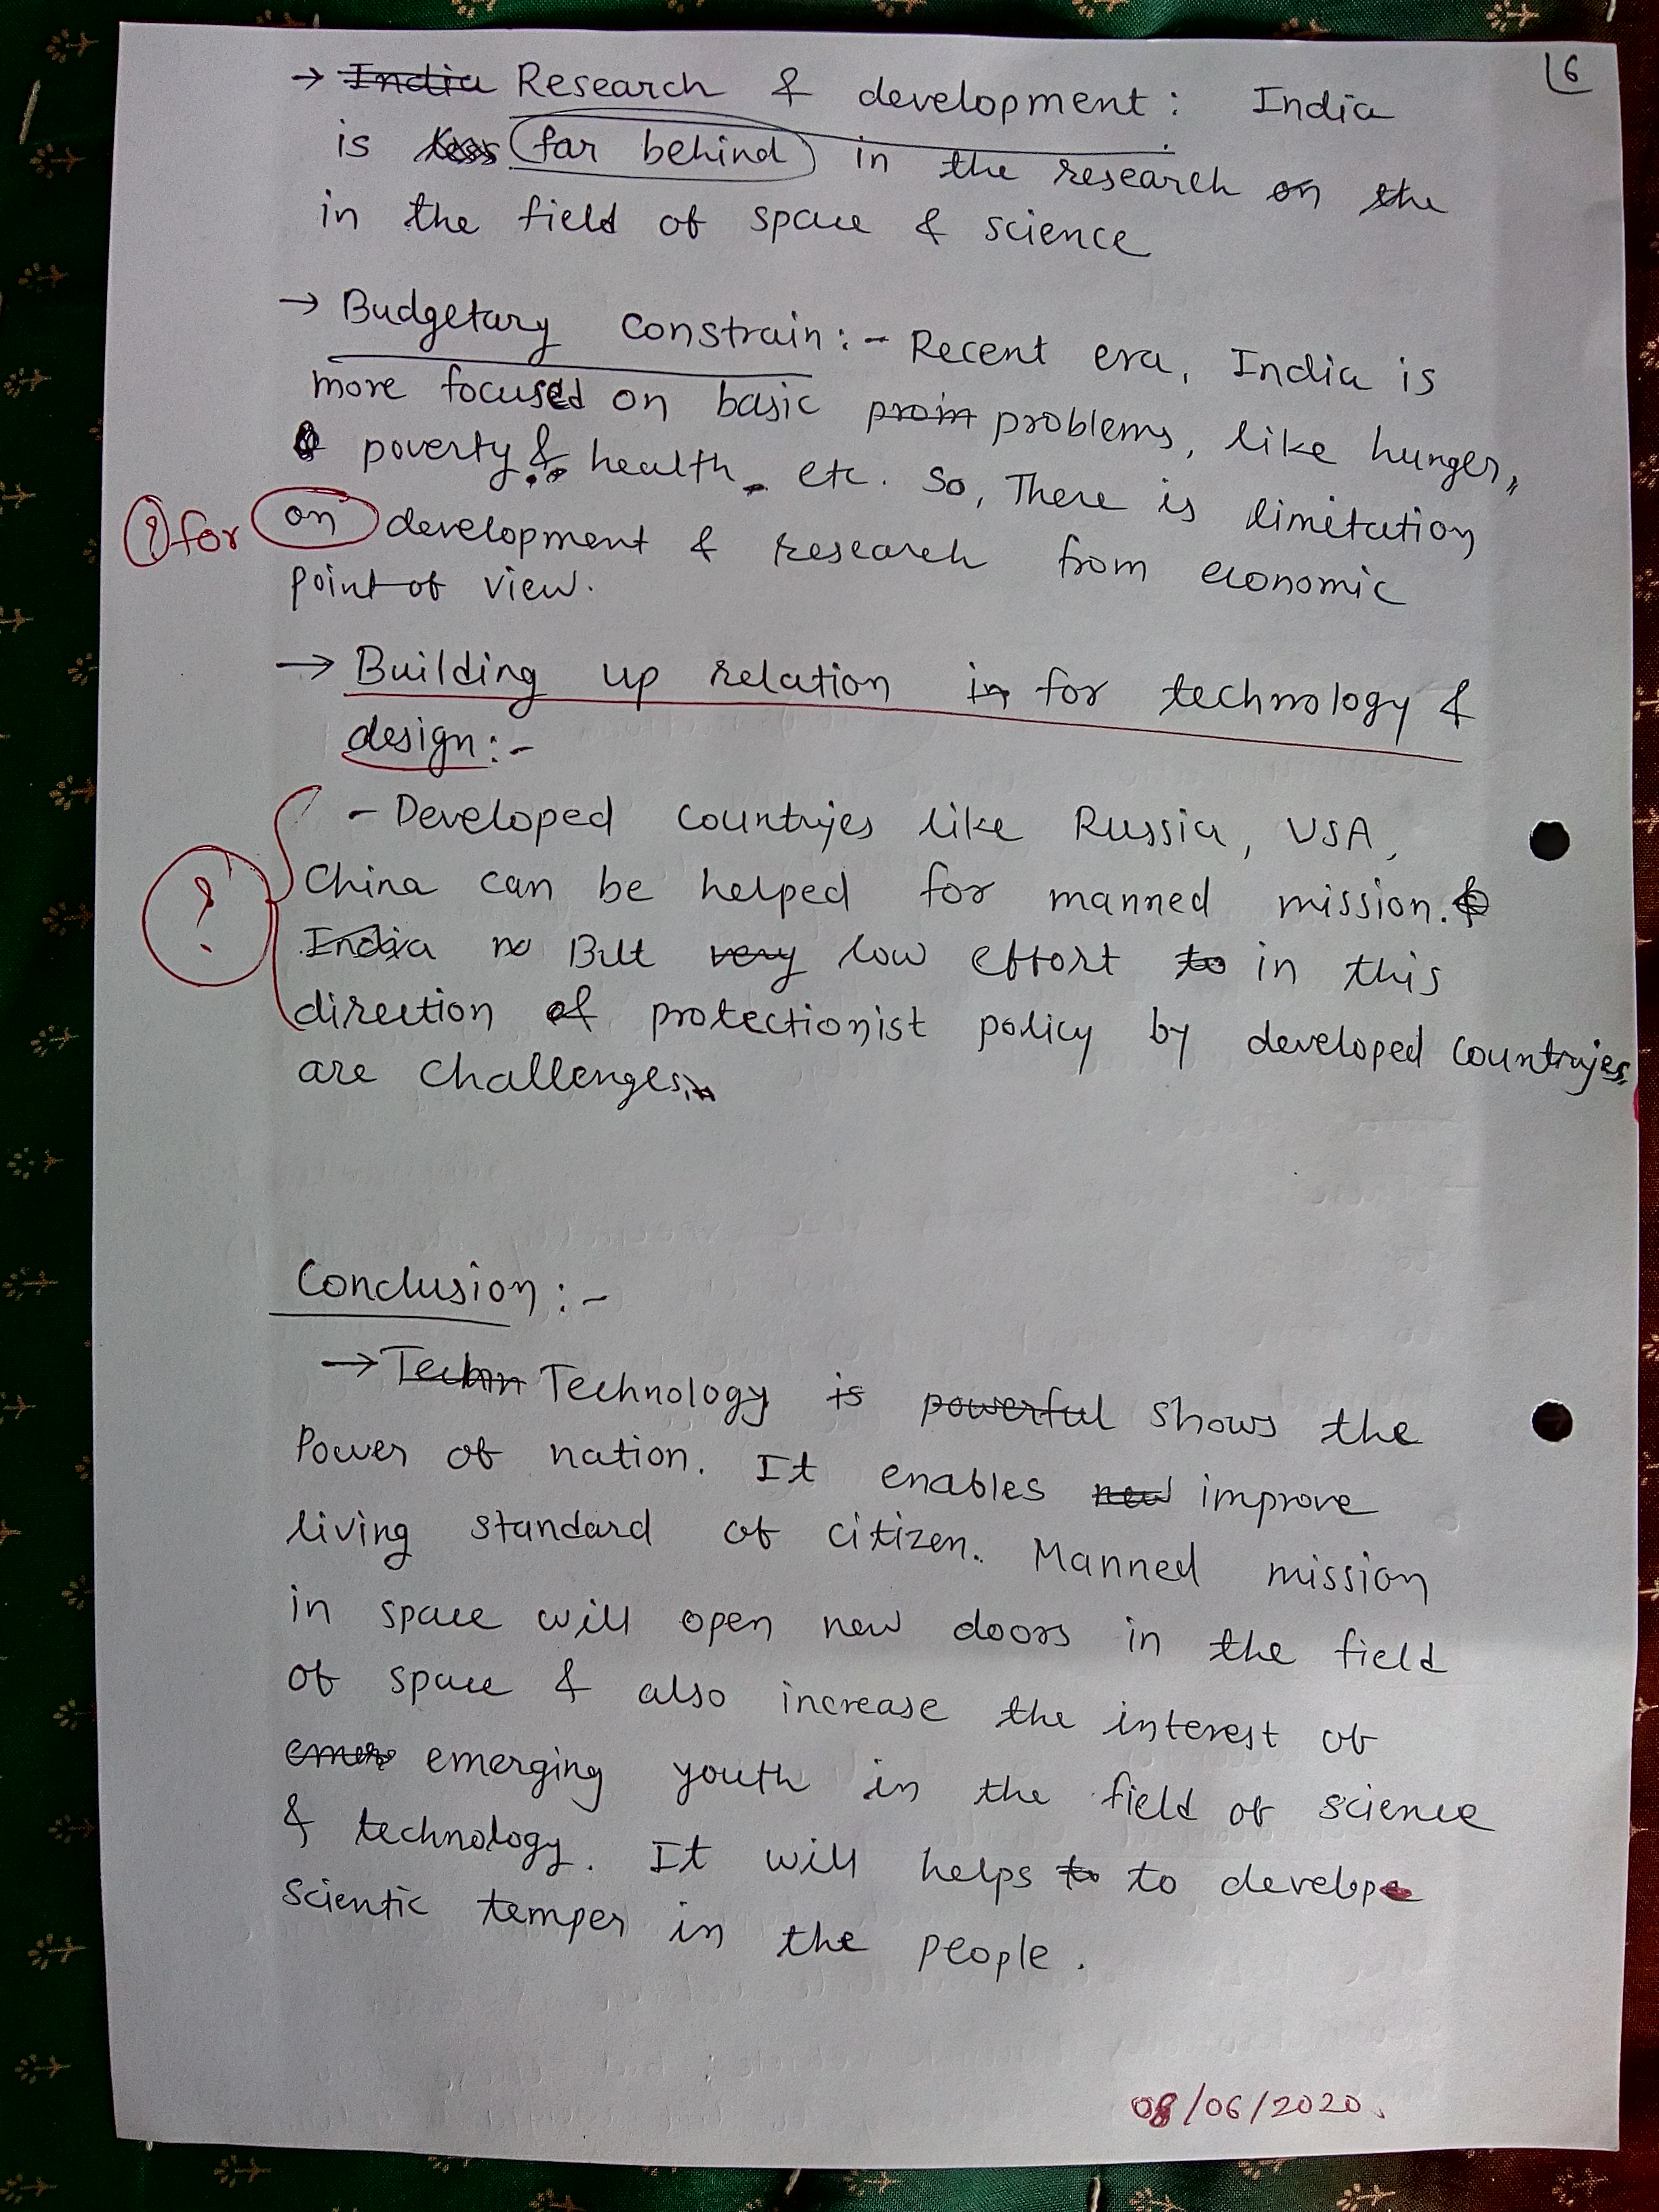 6
→ India Research & development: India
is less far behind in the research on the
in the field of space & science
→ Budgetary constrain:- Recent era, India is
more focused on basic proin problems, like hunger,
poverty & health, etc. So, There is limitation
? for on development & research from economic
point of view.
→ Building up relation in for technology &
design:-
- Developed countries like Russia, USA,
?
China can be helped for manned mission.
India no But very low effort to in this
direction & protectionist policy by developed countries
are challenges.
Conclusion:-
→ Techn Technology is powerful shows the
Power of nation. It enables new improve
living standard of citizen. Manned mission
in space will open new doors in the field
of space & also increase the interest of
emerging youth in the field of science
& technology. It will helps to to develop
scientic temper in the people.
08/06/2020.